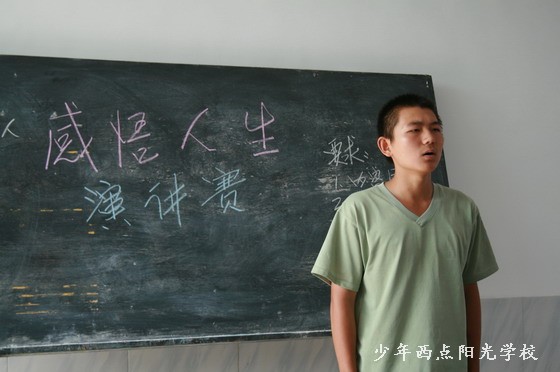 人
感悟人生
演讲赛
要求:
少年西点阳光学校